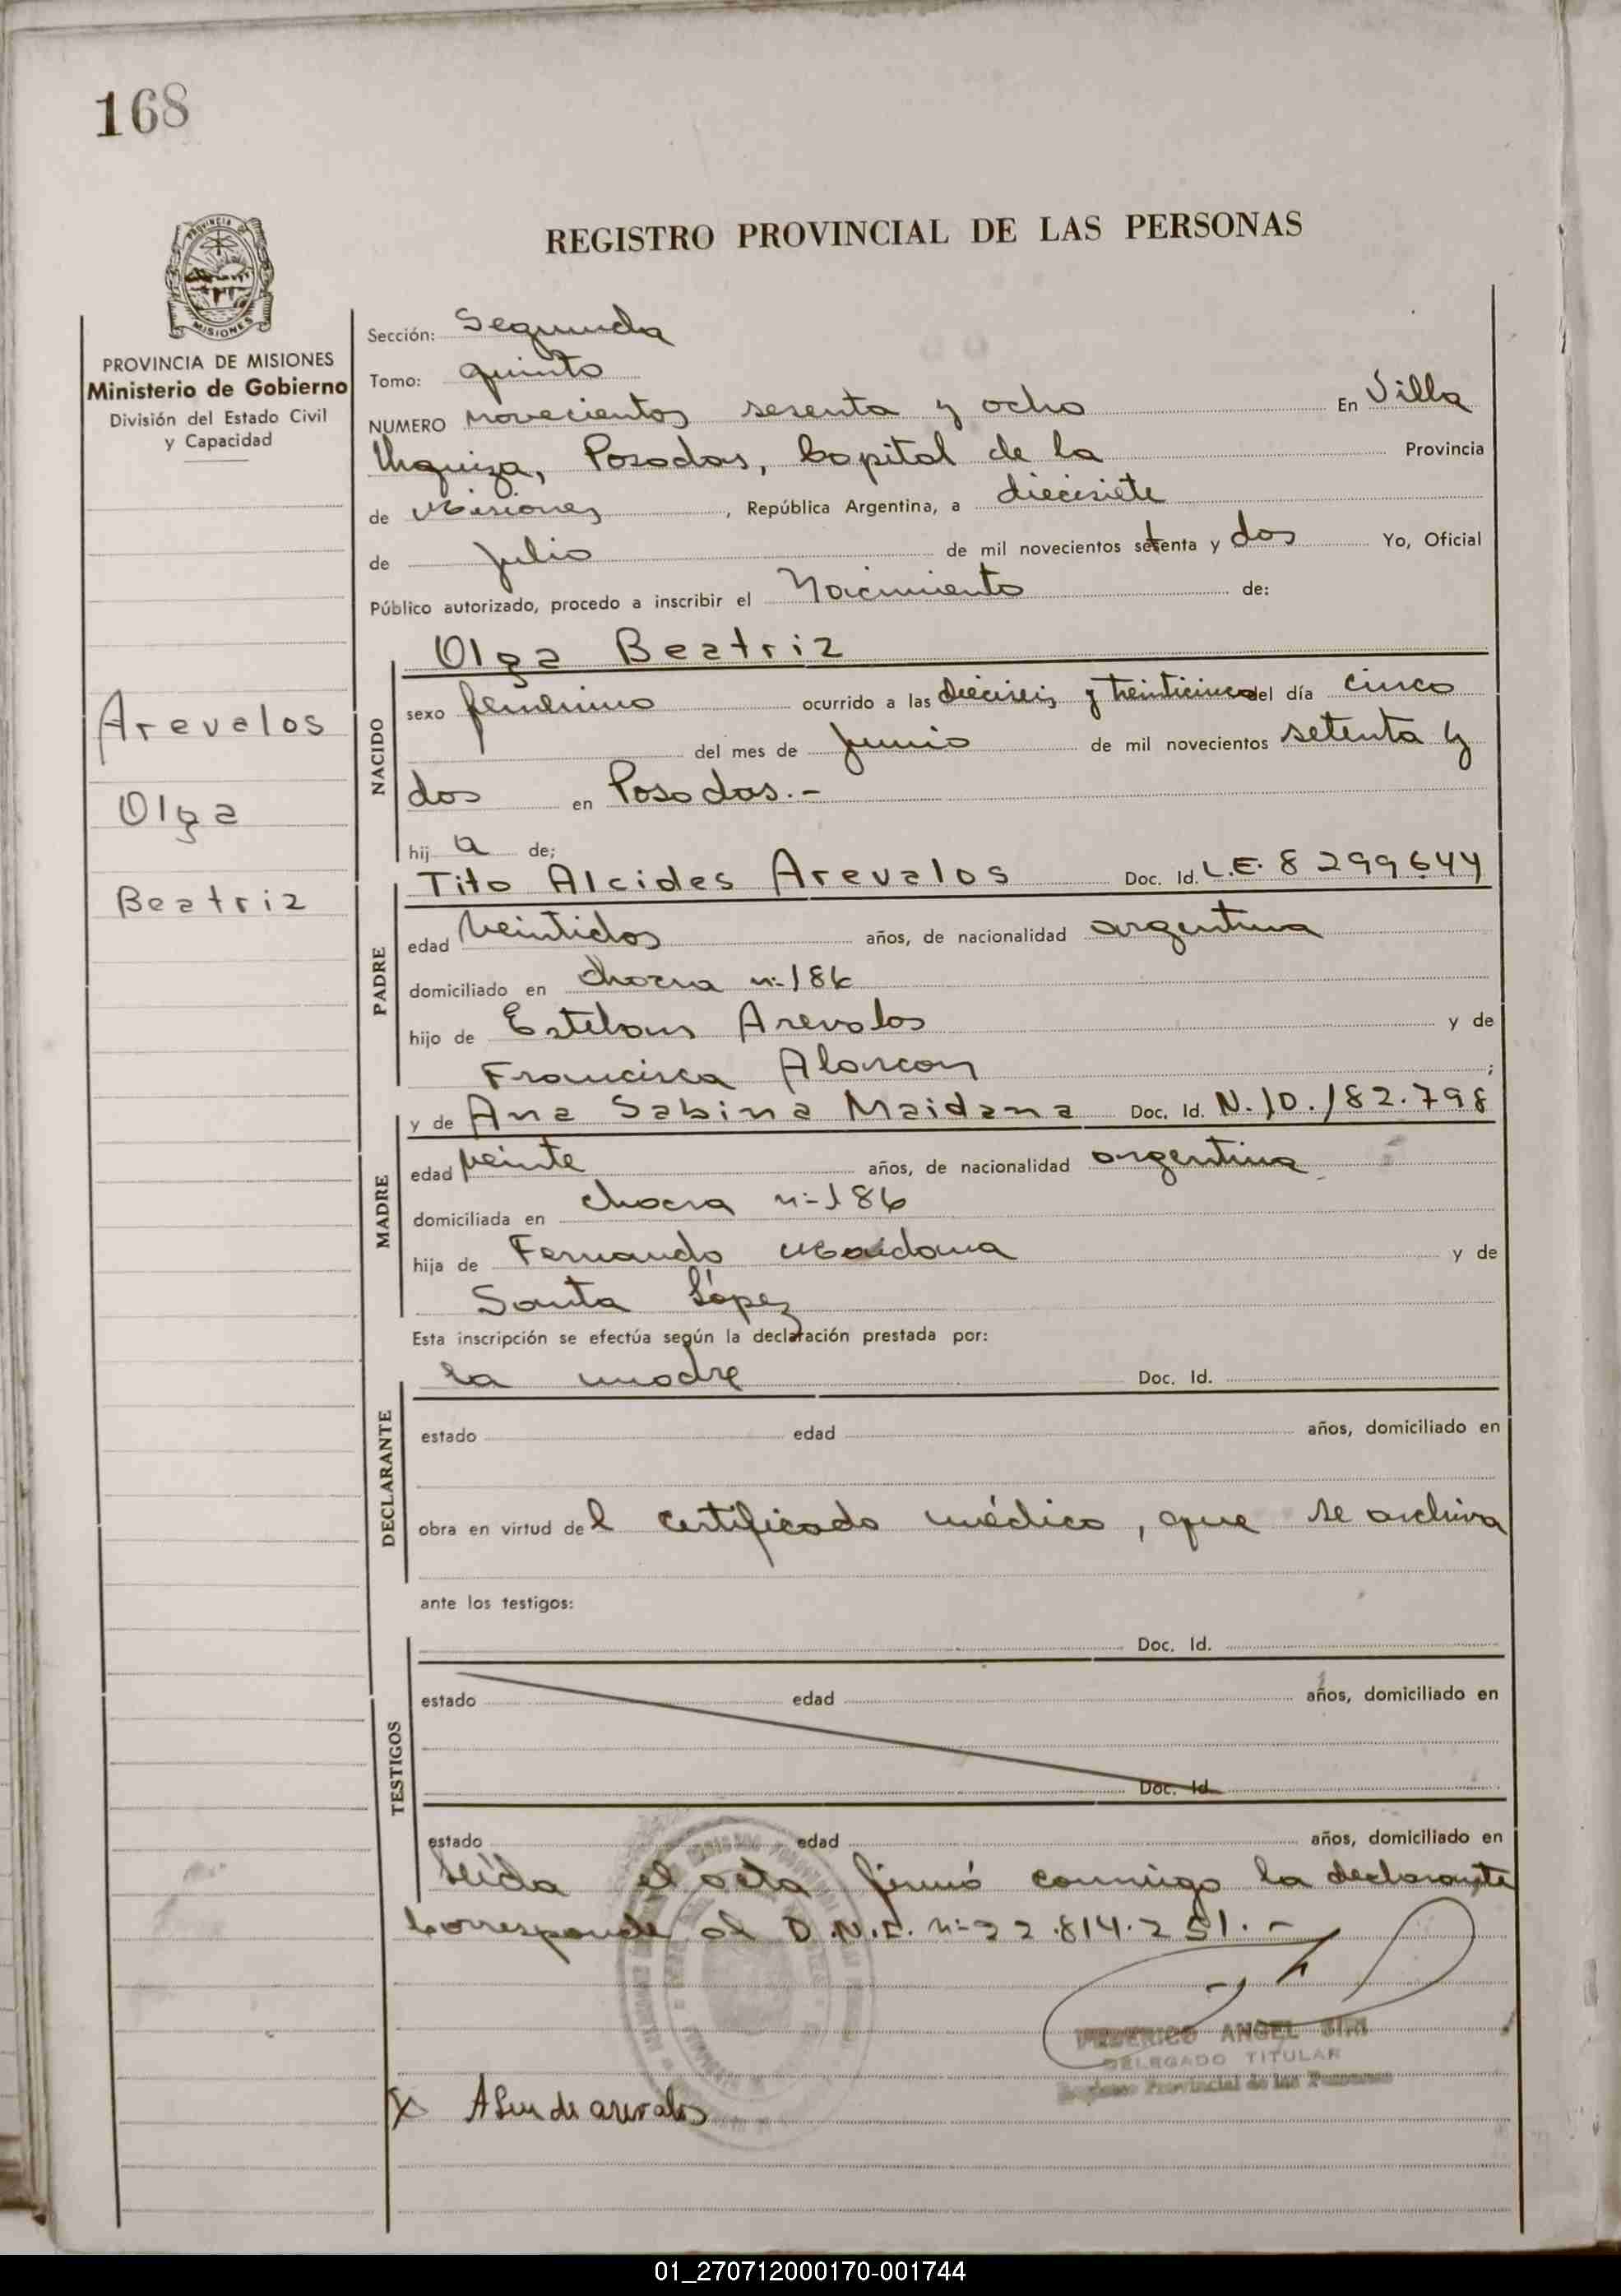 168
PROVINCIA DE MISIONES
Ministerio de Gobierno
División del Estado Civil
y Capacidad
Arevalos
Olga
Beatriz
REGISTRO PROVINCIAL DE LAS PERSONAS
Sección: Segunda
Tomo: quinto
NUMERO novecientos sesenta y ocho En Villa
Urquiza, Posadas, Capital de la Provincia
de Misiones, República Argentina, a diecisiete
de julio de mil novecientos setenta y dos Yo, Oficial
Público autorizado, procedo a inscribir el Nacimiento de:
Olga Beatriz
NACIDO
sexo femenino ocurrido a las dieciseis y treinticinco del día cinco
del mes de junio de mil novecientos setenta y
dos en Posadas.-
hij a de;
PADRE
Tito Alcides Arevalos Doc. Id. L.E. 8299644
edad veintidos años, de nacionalidad argentina
domiciliado en chacra n-186
hijo de Esteban Arevalos y de
Francisca Alarcon;
MADRE
y de Ana Sabina Maidana Doc. Id. N.10.182.798
edad veinte años, de nacionalidad argentina
domiciliada en chacra n-186
hija de Fernando Maidana y de
Santa López
Esta inscripción se efectúa según la declaración prestada por:
DECLARANTE
la madre Doc. Id.
estado edad años, domiciliado en
obra en virtud del certificado médico, que se archiva
ante los testigos:
TESTIGOS
Doc. Id.
estado edad años, domiciliado en
Doc. Id.
estado edad años, domiciliado en
Leída el acta firmó conmigo la declarante
Corresponde al D.N.I. n-22.814.251.-
ANGEL
DELEGADO TITULAR
Registro Provincial de las Personas
X de arevalos
01_270712000170-001744